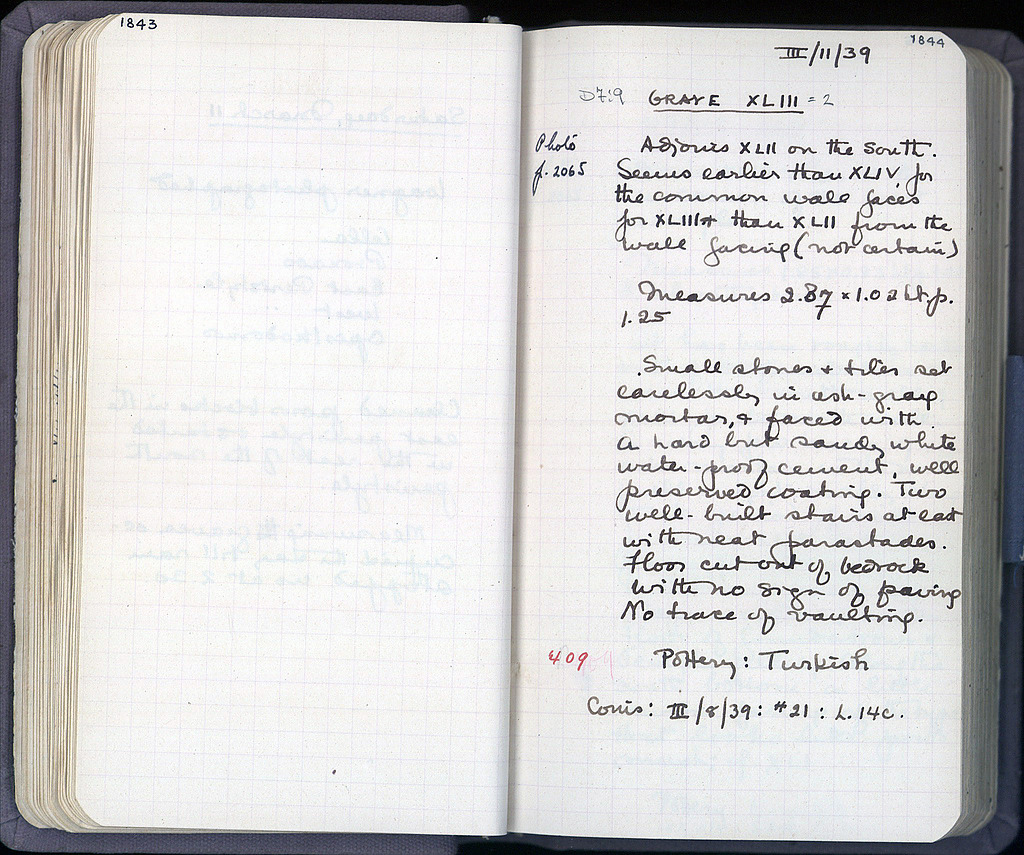 1843
1844
III/11/39
D7:9 GRAVE XLIII = 2
Photo
p. 2065
Adjoins XLII on the South.
Seems earlier than XLIV, for
the common wall faces
for XLIII + than XLII from the
wall facing (not certain)
Measures 2.87 × 1.02 ht. p.
1.25
Small stones + tiles set
carelessly in ash-gray
mortar, & faced with
a hard but sandy white
water-proof cement, well
preserved coating. Two
well-built stairs at east
with neat parastades.
Floor cut out of bedrock
with no sign of paving
No trace of vaulting.
409 Pottery: Turkish
Coins: III/8/39: #21: L. 14c.